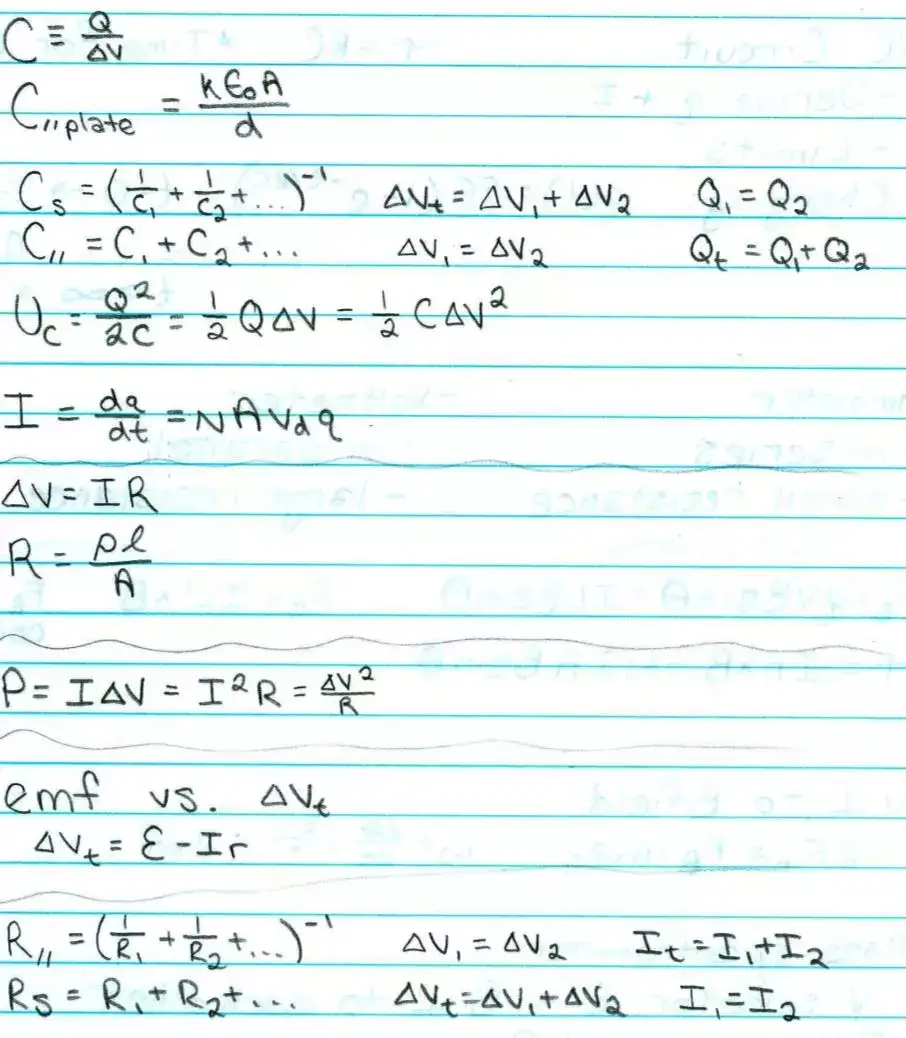 C ≡ Q/ΔV
C// plate = kε₀A/d
Cs = (1/C₁ + 1/C₂ + ...)⁻¹ ΔVt = ΔV₁ + ΔV₂ Q₁ = Q₂
C// = C₁ + C₂ + ... ΔV₁ = ΔV₂ Qt = Q₁ + Q₂
Uc = Q²/2C = 1/2 QΔV = 1/2 CΔV²
I = dq/dt = NAVdq
ΔV = IR
R = ρl/A
P = IΔV = I²R = ΔV²/R
emf vs. ΔVt
ΔVt = ε - Ir
R// = (1/R₁ + 1/R₂ + ...)⁻¹ ΔV₁ = ΔV₂ It = I₁ + I₂
Rs = R₁ + R₂ + ... ΔVt = ΔV₁ + ΔV₂ I₁ = I₂